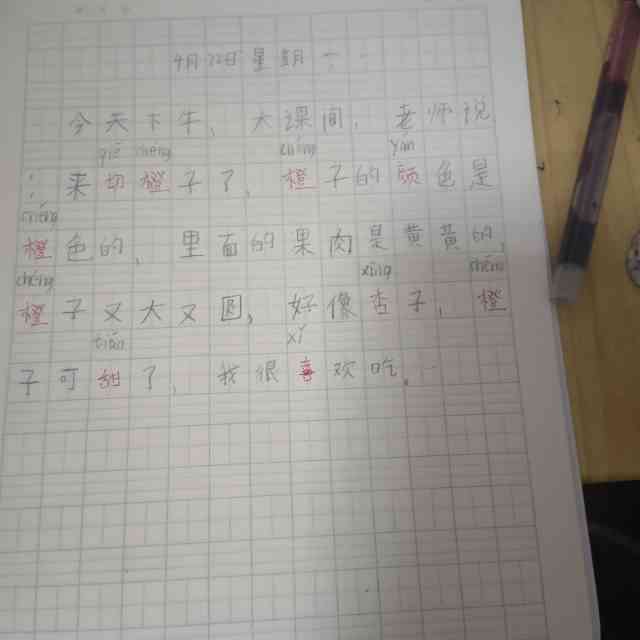 9月22日星期一
今天下午，大课间，老师说
qiē chéng chéng yán
：来切橙子了，橙子的颜色是
chéng
橙色的，里面的果肉是黄黄的，
chéng xìng chéng
橙子又大又圆，好像杏子，橙
tián xǐ
子可甜了，我很喜欢吃。